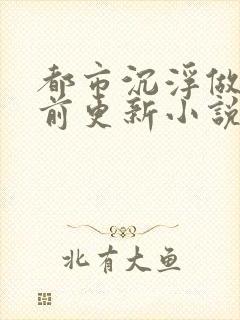 都市沉浮做
前更新小說
北有大鱼